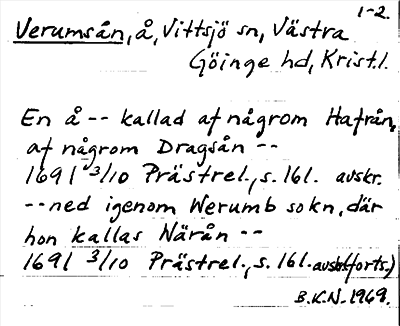 1-2.
Verumsån, å, Vittsjö sn, Västra
Göinge hd, Krist.l.
En å -- kallad af någrom Hafrån,
af någrom Dragsån --
1691 3/10 Prästrel., s. 161. avskr.
-- ned igenom Werumb sokn, där
hon kallas Närån --
1691 3/10 Prästrel., s. 161. avskr. (forts.)
B.K.N. 1969.